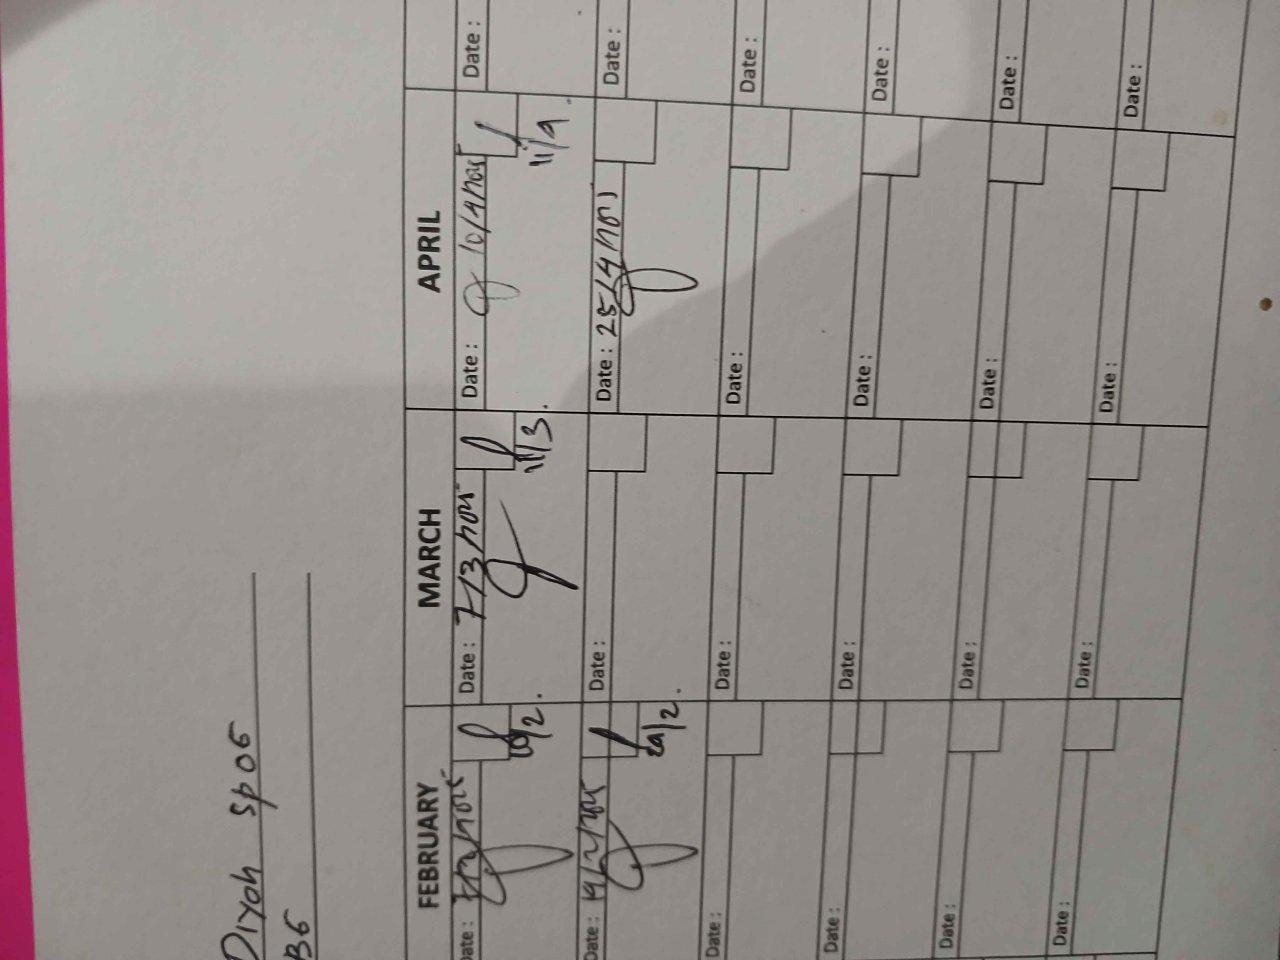 Diyah SpOG
B6
FEBRUARY MARCH APRIL
Date : Date : 7/3/2025 Date : 10/4/2025 Date :
11/3.
Date : Date : Date : 25/4/2025 Date :
Date : Date : Date : Date :
Date : Date : Date : Date :
Date : Date : Date : Date :
Date : Date : Date : Date :